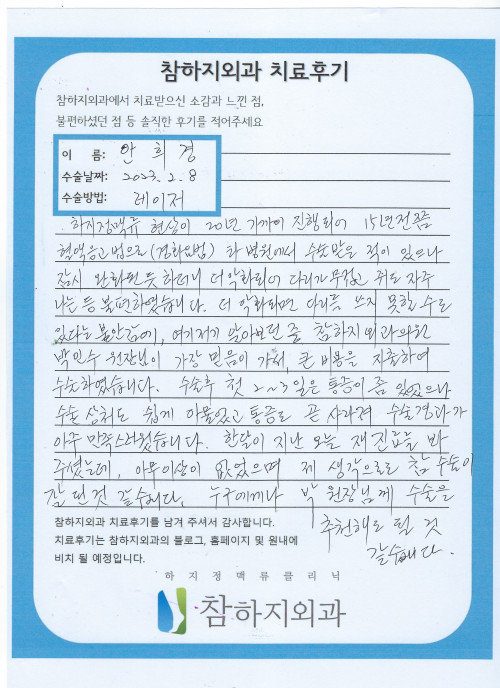 참하지외과 치료후기
참하지외과에서 치료받으신 소감과 느낀 점,
불편하셨던 점 등 솔직한 후기를 적어주세요
이 름: 안 희 경
수술날짜: 2023. 2. 8
수술방법: 레이저
하지정맥류 현상이 20년 가까이 진행되어 15년전쯤
혈액응고법으로(경화요법) 타 병원에서 수술 받은 적이 있으나
잠시 완화된듯 하더니 더 악화되어 다리가 무겁고 쥐도 자주
나는 등 불편하였습니다. 더 악화되면 다리를 쓰지 못할 수도
있다는 불안감에, 여기저기 알아보던 중 참하지외과의원
박인수 원장님이 가장 믿음이 가서, 큰 비용을 지출하여
수술하였습니다. 수술후 첫 2~3일은 통증이 좀 있었으나
수술 상처도 쉽게 아물었고 통증도 곧 사라져 수술경과가
아주 만족스러웠습니다. 한달이 지난 오늘 재진료를 봐
주셨는데, 아무이상이 없었으며 제 생각으로도 참 수술이
잘 된것 같습니다. 누구에게나 박 원장님께 수술을
추천해도 될 것
같습니다.
참하지외과 치료후기를 남겨 주셔서 감사합니다.
치료후기는 참하지외과의 블로그, 홈페이지 및 원내에
비치 될 예정입니다.
하지정맥류클리닉
참하지외과